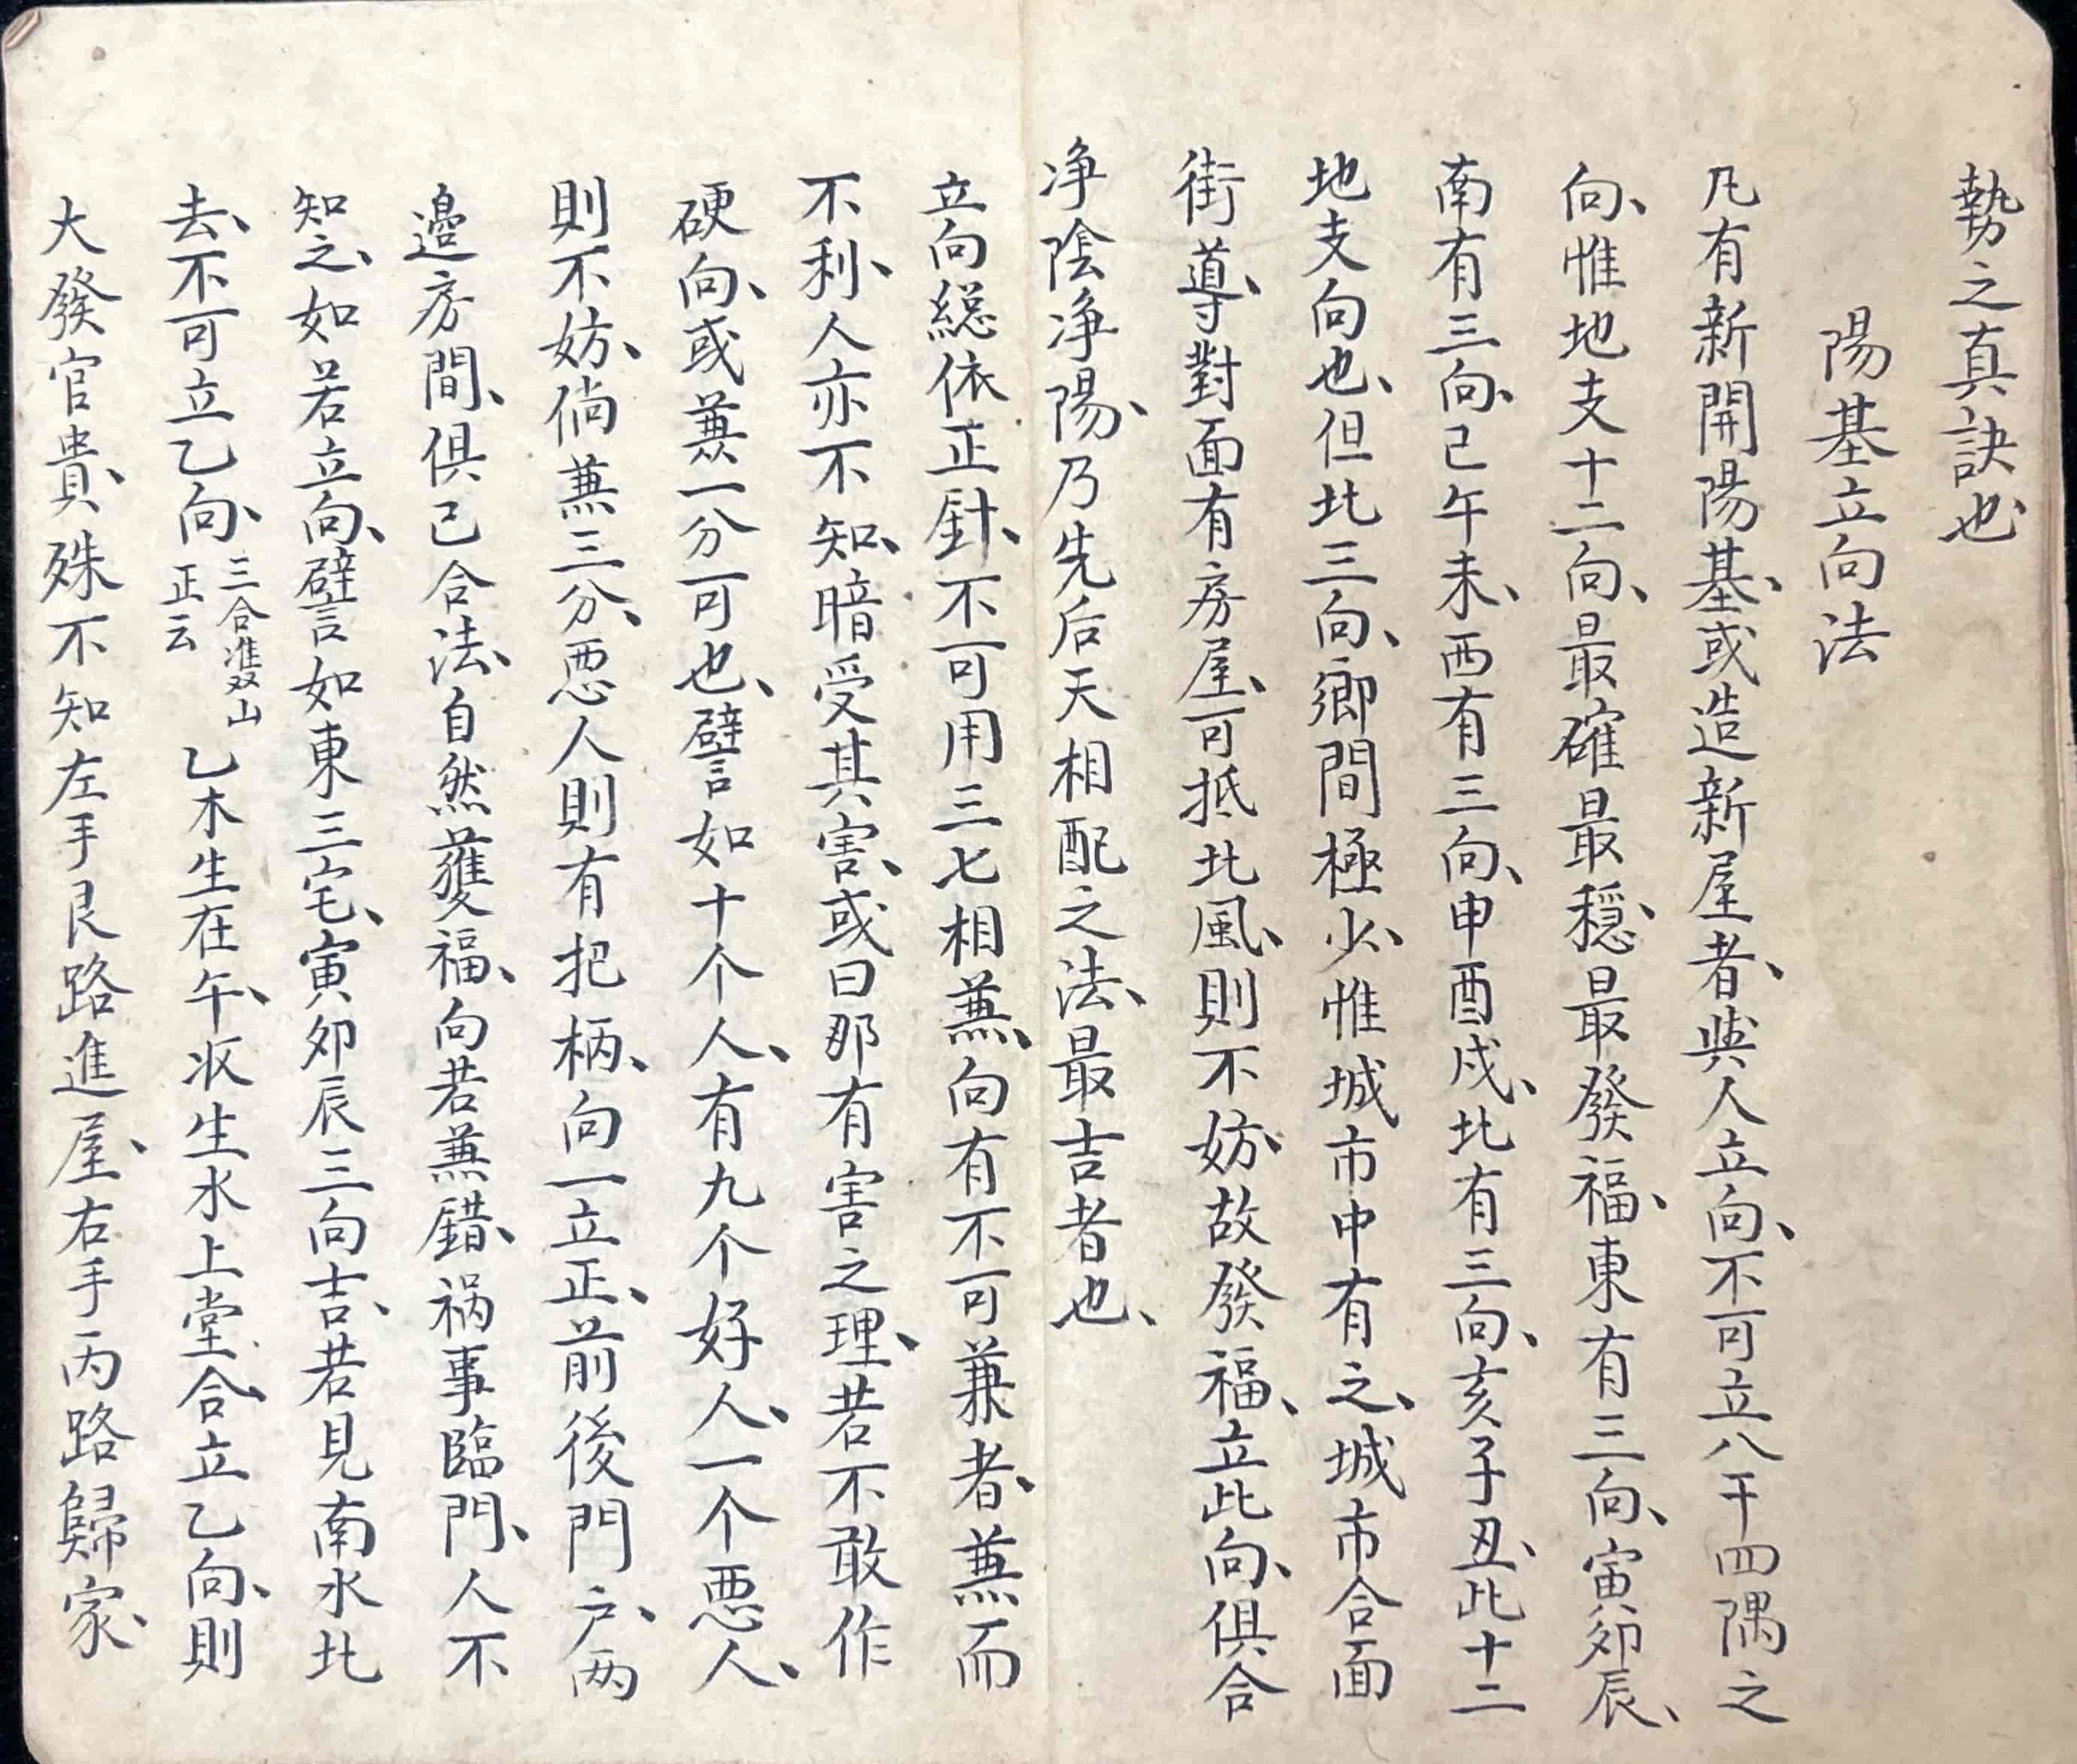 勢之真訣也
陽基立向法
凡有新開陽基、或造新屋者、與人立向、不可立八干四隅之
向、惟地支十二向、最確最穩、最發福、東有三向、寅卯辰、
南有三向、巳午未、西有三向、申酉戌、北有三向、亥子丑、此十二
地支向也、但北三向、鄉間極少、惟城市中有之、城市合面
街導、對面有房屋、可抵北風、則不妨、故發福、立此向、俱合
净陰净陽、乃先后天相配之法、最吉者也、
立向緫依正針、不可用三七相兼、向有不可兼者、兼而
不利、人亦不知、暗受其害、或曰那有害之理、若不敢作
硬向、或兼一分可也、譬如十个人、有九个好人、一个恶人、
則不妨、倘兼三分、恶人則有把柄、向一立正、前後門户、两
邉房間、俱已合法、自然獲福、向若兼錯、禍事臨門、人不
知之、如若立向、譬如東三宅、寅卯辰三向吉、若見南水北
去、不可立乙向、三合進双山
正云
乙木生在午、收生水上堂、合立乙向、則
大發官貴、殊不知左手艮路進屋、右手丙路歸家、